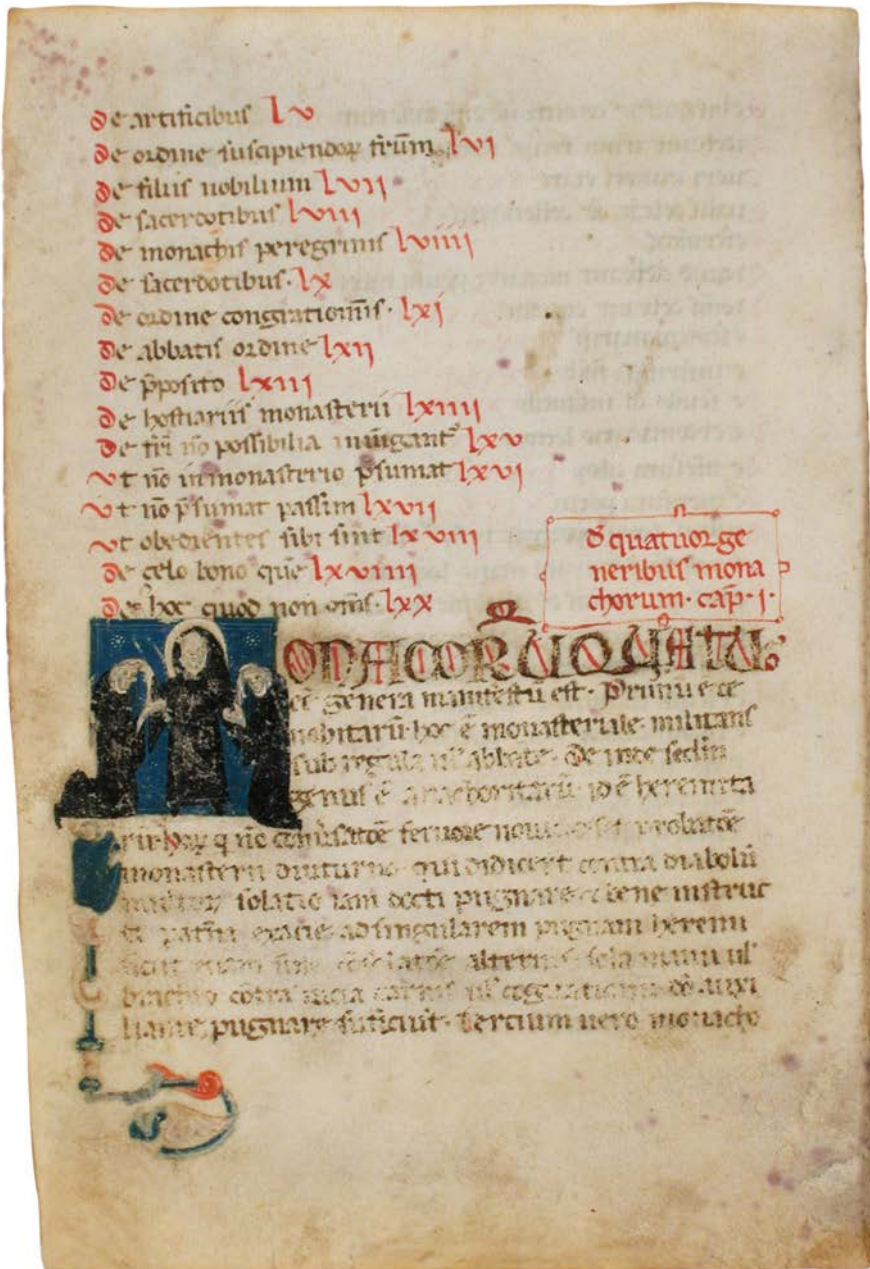 De artificibus lv
De ordine suscipiendoꝝ fr̄um lvi
De filiis nobilium lvii
De sacerdotibus lviii
De monachis peregrinis lviiii
De sacerdotibus · lx
De ordine congͣtionis · lxi
De abbatis ordine lxii
De p̄posito lxiii
De hostiariis monasterii lxiiii
De fr̄i nō possibilia iniūgant᷑ lxv
Ut nō in monasterio p̄sumat lxvi
Ut nō p̄sumat passim lxvii
Ut obedientes sibi sint lxviii
De çelo bono quē lxviiii
De hoc quod non om̄s · lxx
D̄ quatuor ge
neribus mona
chorum · cap̄ · i ·
MONACORŪ QUATU
or genera manifestū est · Primū
nobitarū hoc ē monasteriale militans
sub regula ul' abbate · De inde sedm̄
genus ē anachoritarū id ē heremita
rū hoꝝ q nō fervore
monasterii diuturna qui didicert contra diabolū
solatio iam docti pugnare et bene instruc
ti exacie ad singularem pugnam heremi
alterius sola manu ul'
brachio cōtra uicia carnis ul' cogitationū dō auxi
liante pugnare suficiūt · tercium uero monacho